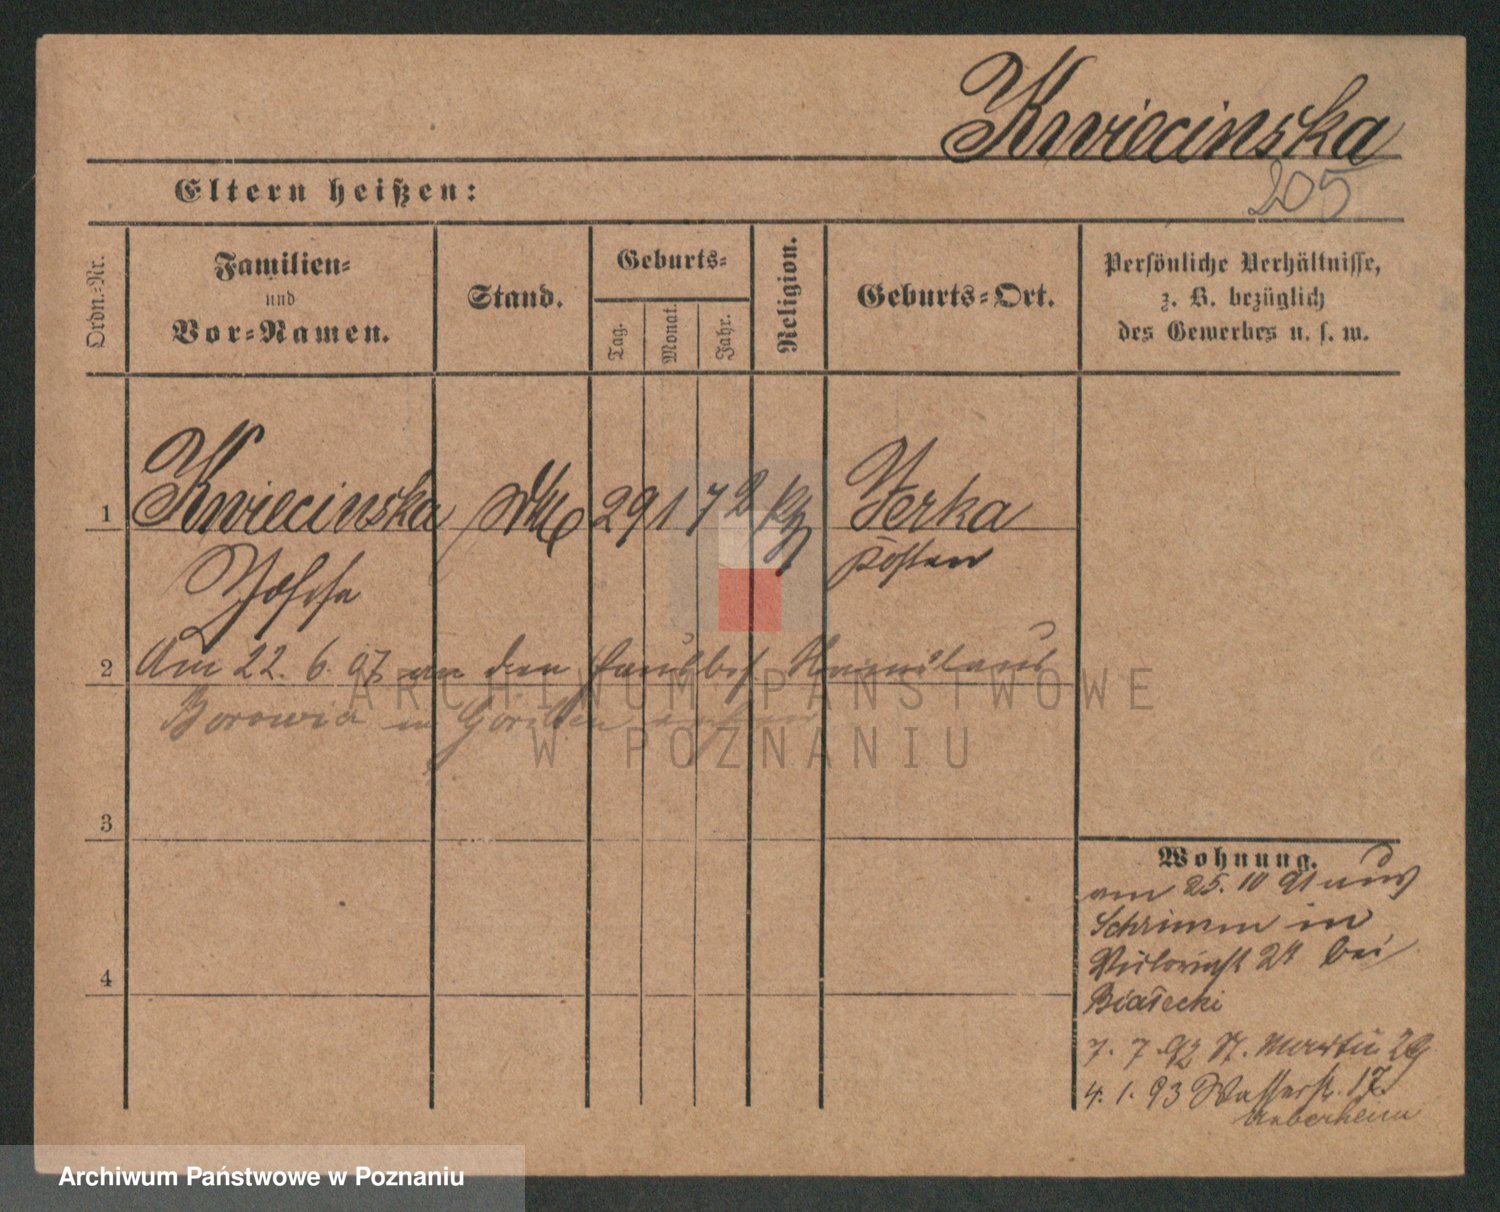 Kwiecinska
205
Eltern heißen:
Ordn.-Nr.
Familien-
und
Vor-Namen.
Stand.
Geburts-
Tag.
Monat.
Jahr.
Religion.
Geburts-Ort.
Persönliche Verhältnisse,
z. B. bezüglich
des Gewerbes u. s. w.
1 Kwiecinska 29 1 72 Jerka
Josefa Kosten
2 Am 22. 6. 97 an den
Borowia in
3
4
Wohnung.
am 25. 10 91 aus
Schrimm in
24 bei
Białecki
7. 7. 92 St. Martin 29
4. 1. 93 Wasserstr. 17.
ARCHIWUM PAŃSTWOWE
W POZNANIU
Archiwum Państwowe w Poznaniu